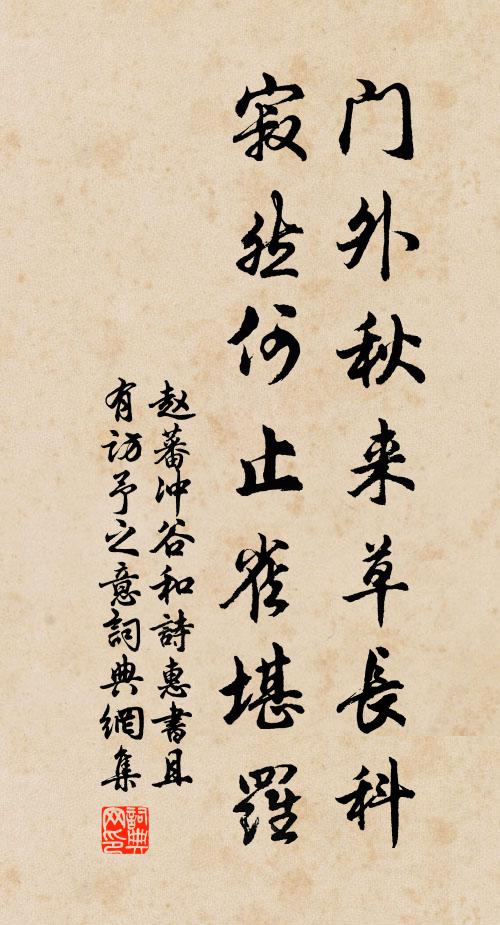 门外秋来草長科
寂然何止雀堪羅
赵蕃冲谷和詩惠書且
有访予之意詞典網集
詞典网印